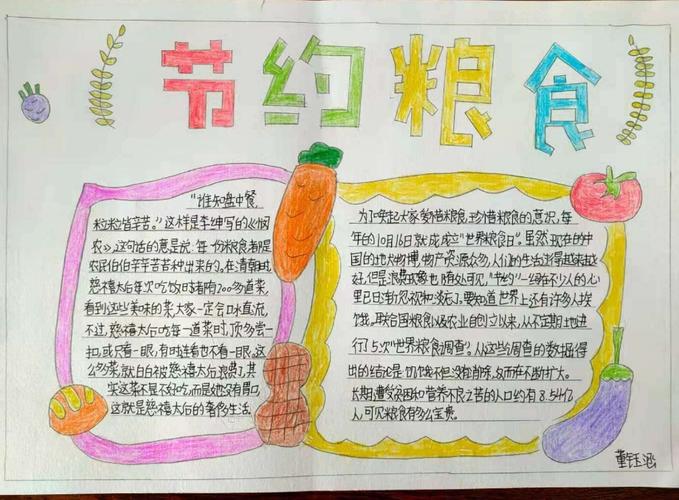 节约粮食
“谁知盘中餐,
粒粒皆辛苦。”这样是李绅写的《悯
农》,这句话的意思说:每一份粮食都是
农民伯伯辛辛苦苦种出来的。在清朝时,
慈禧太后每次吃饭时都有200多道菜,
看到这些美味的菜大家一定会口水直流,
不过,慈禧太后吃每一道菜时,顶多尝一
扣,或只看一眼,有时连看也不看一眼,这
么多菜,就白白被慈禧太后浪费了,其
实这菜不是不好吃,而是她没有胃口,
这就是慈禧太后的奢侈生活。
为了唤起大家爱惜粮食,珍惜粮食的意识,每
年的10月16日就成立“世界粮食日”。虽然现在的中
国的地大物博,物产资源众多,人们的生活过得越来越
好,但是浪费现象也随处可见,“节约”一词在不少人的心
里已日渐忽视和淡忘了。要知道世界上还有许多人挨
饿。联合国粮食以及农业自创立以来,从不定期土地进
行了5次“世界粮食调查”。从这些调查的数据得
出的结论是:饥饿不但没有消除,反而在不断扩大。
长期遭受贫困和营养不良之苦的人口约有8.54亿
人,可见粮食有多么宝贵。
董钰涵